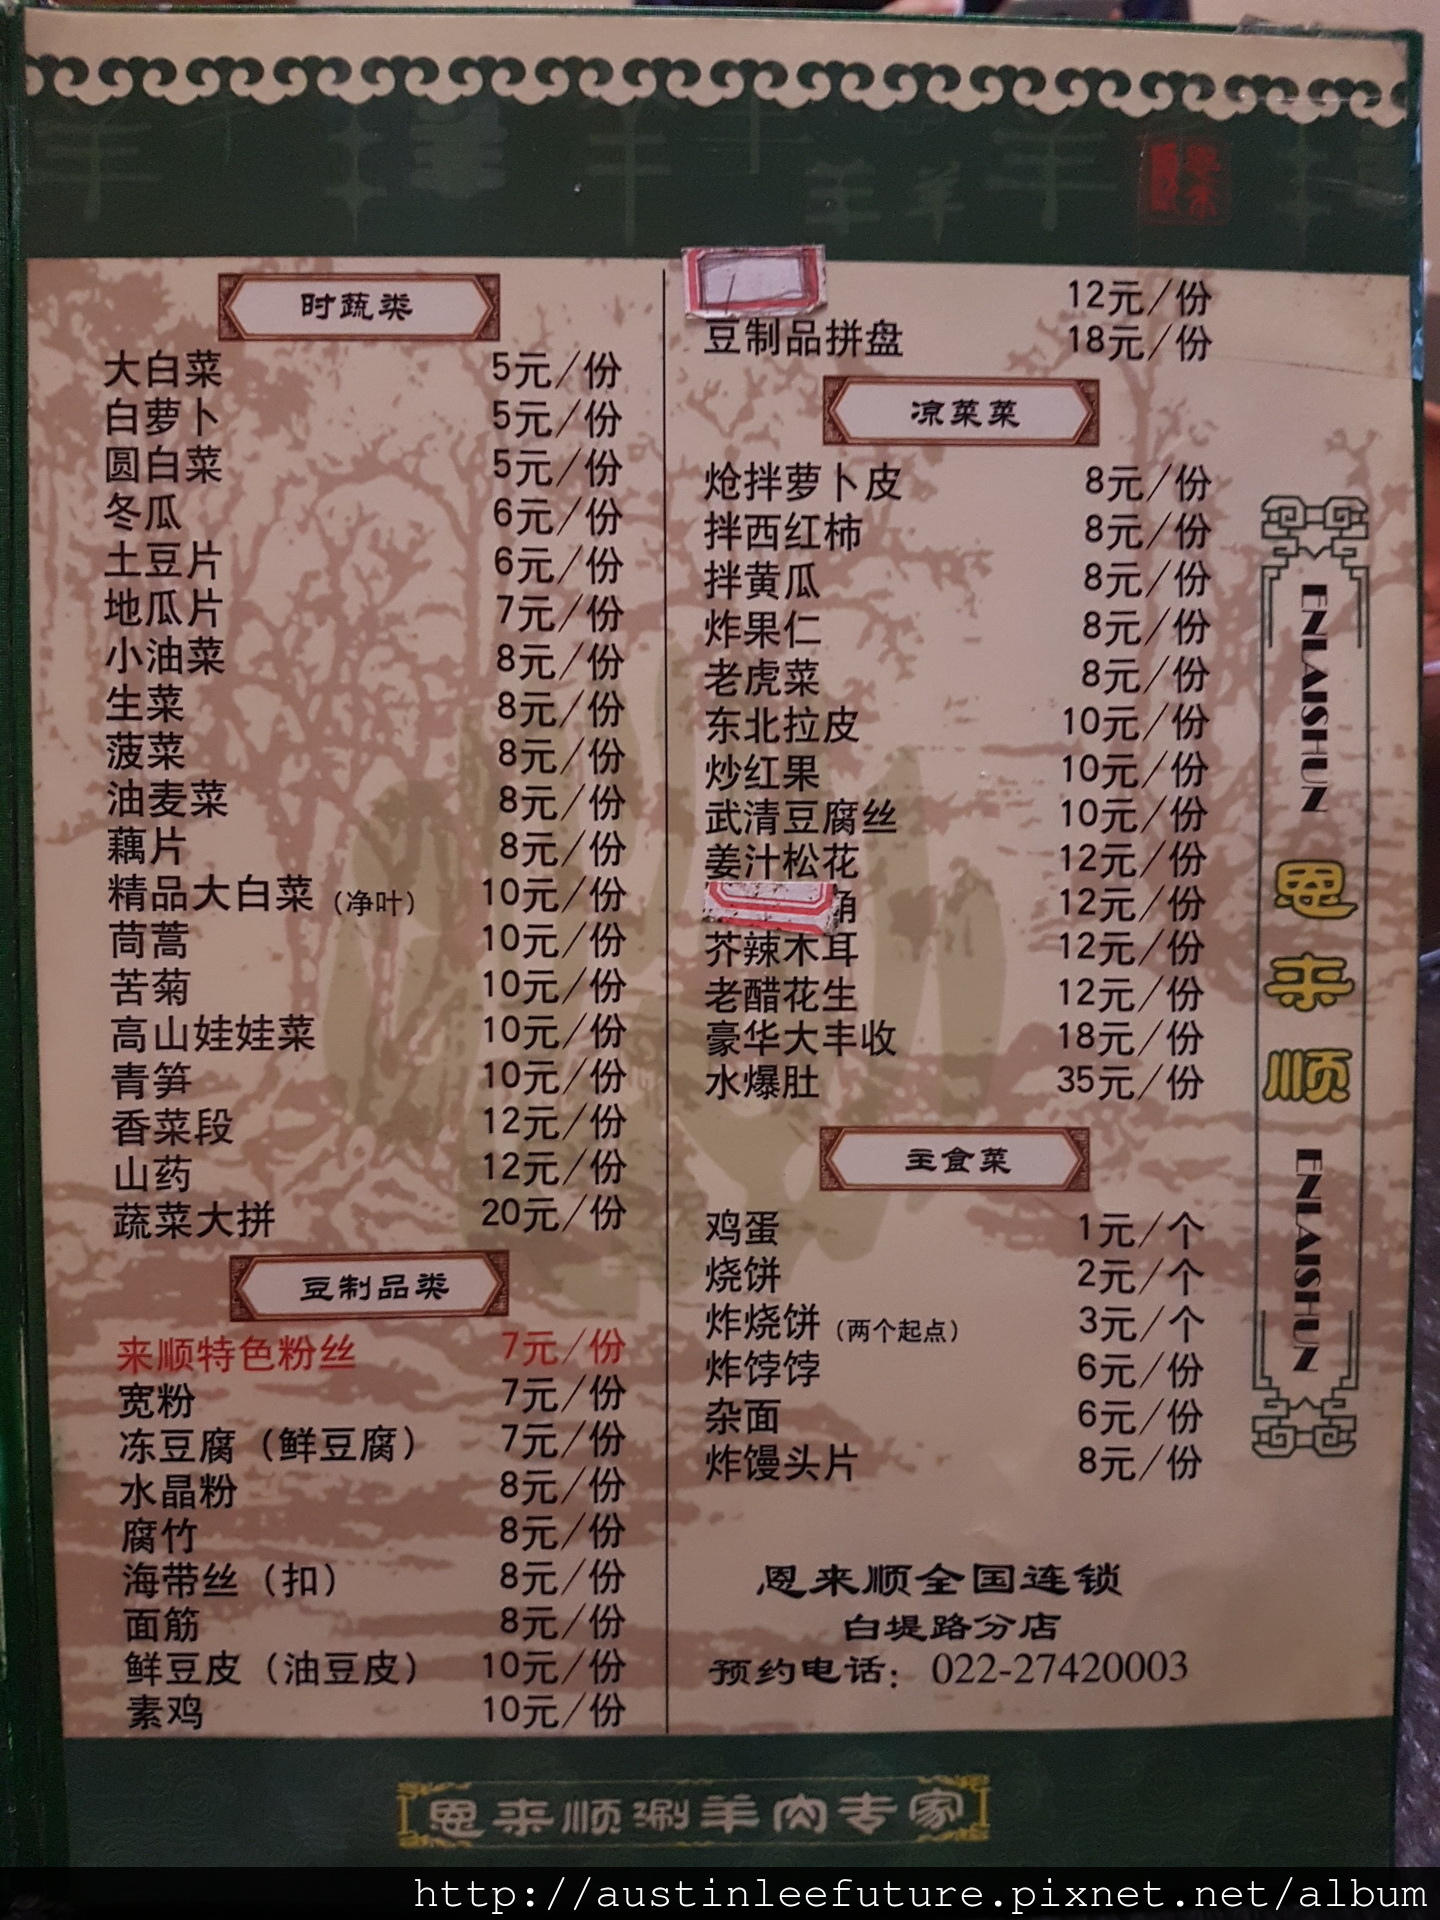 时蔬类
大白菜 5元/份
白萝卜 5元/份
圆白菜 5元/份
冬瓜 6元/份
土豆片 6元/份
地瓜片 7元/份
小油菜 8元/份
生菜 8元/份
菠菜 8元/份
油麦菜 8元/份
藕片 8元/份
精品大白菜(净叶) 10元/份
茼蒿 10元/份
苦菊 10元/份
高山娃娃菜 10元/份
青笋 10元/份
香菜段 12元/份
山药 12元/份
蔬菜大拼 20元/份
豆制品类
来顺特色粉丝 7元/份
宽粉 7元/份
冻豆腐（鲜豆腐） 7元/份
水晶粉 8元/份
腐竹 8元/份
海带丝（扣） 8元/份
面筋 8元/份
鲜豆皮（油豆皮） 10元/份
素鸡 10元/份
12元/份
豆制品拼盘 18元/份
凉菜菜
炝拌萝卜皮 8元/份
拌西红柿 8元/份
拌黄瓜 8元/份
炸果仁 8元/份
老虎菜 8元/份
东北拉皮 10元/份
炒红果 10元/份
武清豆腐丝 10元/份
姜汁松花 12元/份
12元/份
芥辣木耳 12元/份
老醋花生 12元/份
豪华大丰收 18元/份
水爆肚 35元/份
主食菜
鸡蛋 1元/个
烧饼 2元/个
炸烧饼(两个起点) 3元/个
炸饽饽 6元/份
杂面 6元/份
炸馒头片 8元/份
恩来顺全国连锁
白堤路分店
预约电话：022-27420003
ENLAISHUN
恩来顺
ENLAISHUN
恩来顺涮羊肉专家
http://austinleefuture.pixnet.net/album